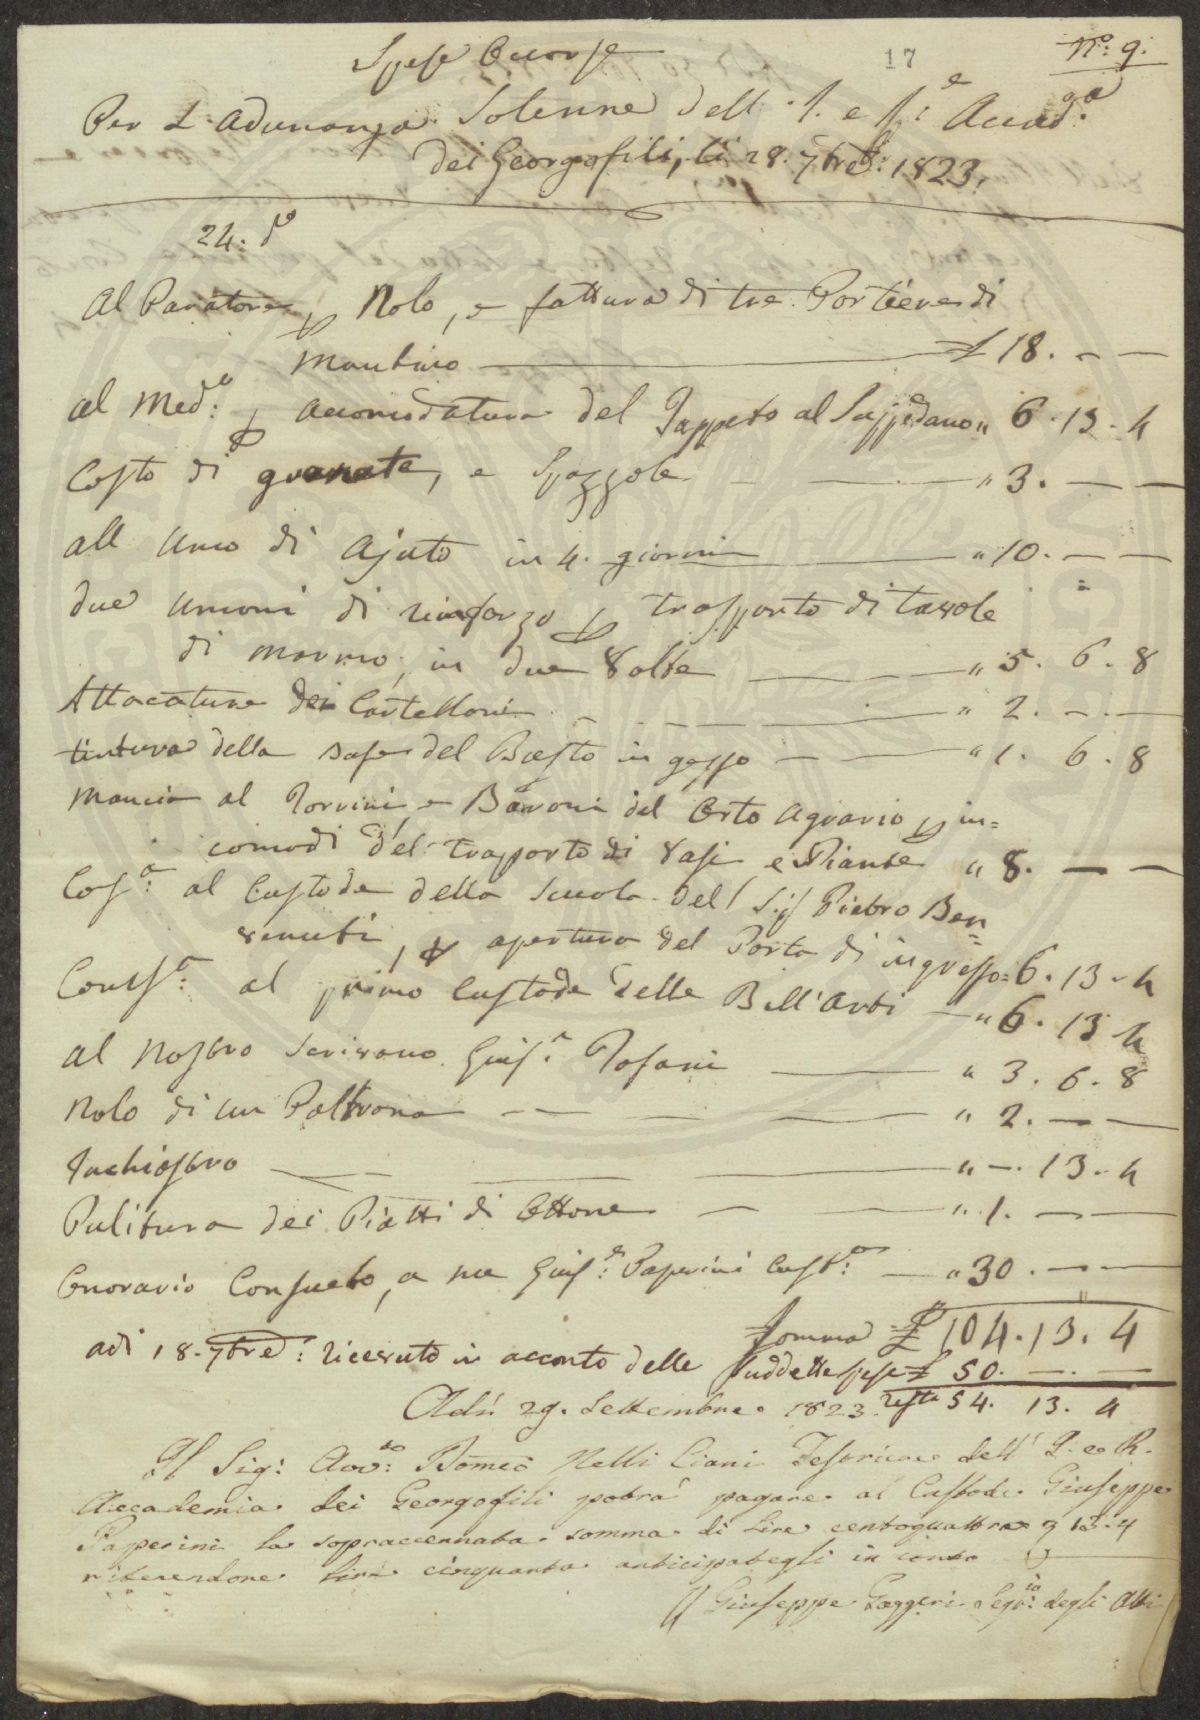 Spese Occorse
17
N.º 9.
Per L'Adunanza Solenne dell' I. e R.e Accad.a
dei Georgofili, li 28. 7bre: 1823.
24. do
Al Paratore, p Nolo, e fattura di tre Portiere di
Mantino £ 18. — —
al Med.o: p Accomodatura del Tappeto al Suppedano " 6. 13. 4
Costo di granate, e Spazzole " 3. — —
all Uno di Ajuto in 4. giorni " 10. — —
due Uomini di rinforzo p trasporto di tavole
di marmo, in due Volte " 5. 6. 8
Attacatura dei Cartelloni " 2. — —
tintura della Base del Busto in gesso " 1. 6. 8
Mancia al Torrini, e Baroni del Orto Agrario p in=
comodi del trasporto di Vasi e Piante " 8. — —
Cos.a: al Custode della Scuola del Sig Pietro Ben=
venuti, p apertura del Porta di ingresso = 6. 13. 4
Cons.a: al primo Custode delle Bell'Arti " 6. 13. 4
al Nostro Scrivano Gius.e Tofani " 3. 6. 8
Nolo di un Poltrona " 2. — —
Inchiostro " —. 13. 4
Pulitura dei Piatti di Ottone " 1. — —
Onorario Consueto, a me Gius.e: Paperini Cust.e: " 30. — —
Somma £ 104. 13. 4
adi 18. 7bre: ricevuto in acconto delle Suddette spese £ 50. — —
resta 54. 13. 4
Adì 29. Settembre 1823.
Il Sig: Avv.to: Romeo Nelli Ciani Tesoriere dell' I. e R.
Accademia dei Georgofili potrà pagare al Custode Giuseppe
Paperini la sopraccennata somma di Lire centoquattro 9 13. 4
ritenendone Lire cinquanta anticipategli in conto
Giuseppe Gazzeri Segr.io: degli Atti